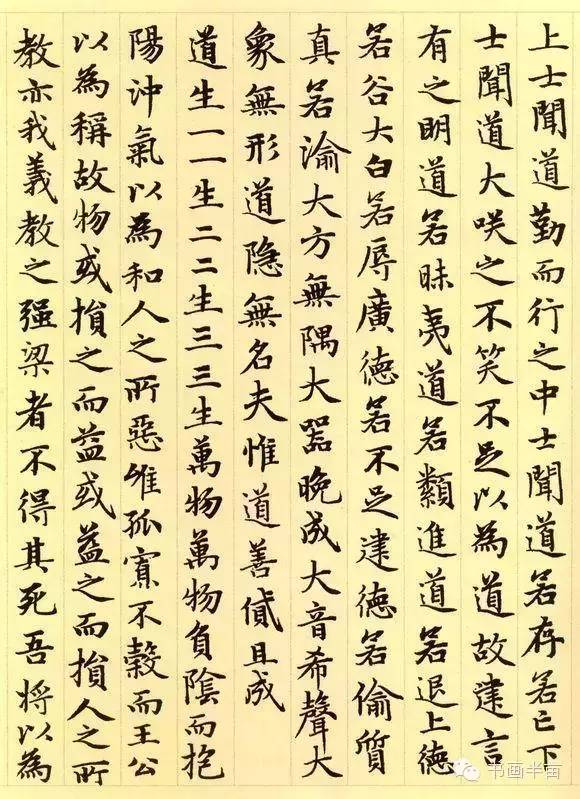 上士聞道勤而行之中士聞道若存若亡下
士聞道大咲之不笑不足以為道故建言
有之明道若昧夷道若纇進道若退上德
若谷大白若辱廣德若不足建德若偷質
真若渝大方無隅大器晚成大音希聲大
象無形道隐無名夫惟道善貸且成
道生一一生二二生三三生萬物萬物負陰而抱
陽沖氣以為和人之所惡惟孤寡不穀而王公
以為稱故物或損之而益或益之而損人之所
教亦我義教之强梁者不得其死吾將以為
书画半亩